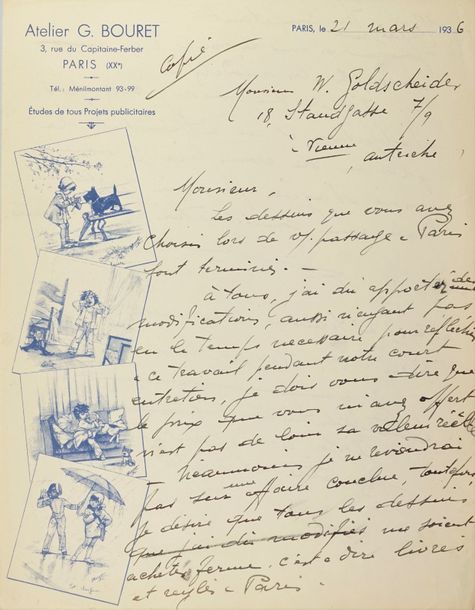 Atelier G. BOURET
3, rue du Capitaine-Ferber
PARIS (XXe)
Tél.: Ménilmontant 93-99
Études de tous Projets publicitaires
PARIS, le 21 mars 1936
Copie
Monsieur W. Goldscheider
18, Standgasse 7/9
à Vienne
autriche
Monsieur,
Les dessins que vous avez
choisis lors de v/ passage à Paris
sont terminés. —
à tous, j'ai dû apporter des
modifications, aussi n'ayant pas
eu le temps nécessaire pour réfléchir
à ce travail pendant notre court
entretien, je dois vous dire que
le prix que vous m'avez offert
n'est pas de loin sa valeur réelle
Néanmoins je ne reviendrai
pas sur une affaire conclue, toutefois
je désire que tous les dessins
que j'ai dû modifiés me soient
achetés ferme, c'est à dire livrés
et réglés à Paris.